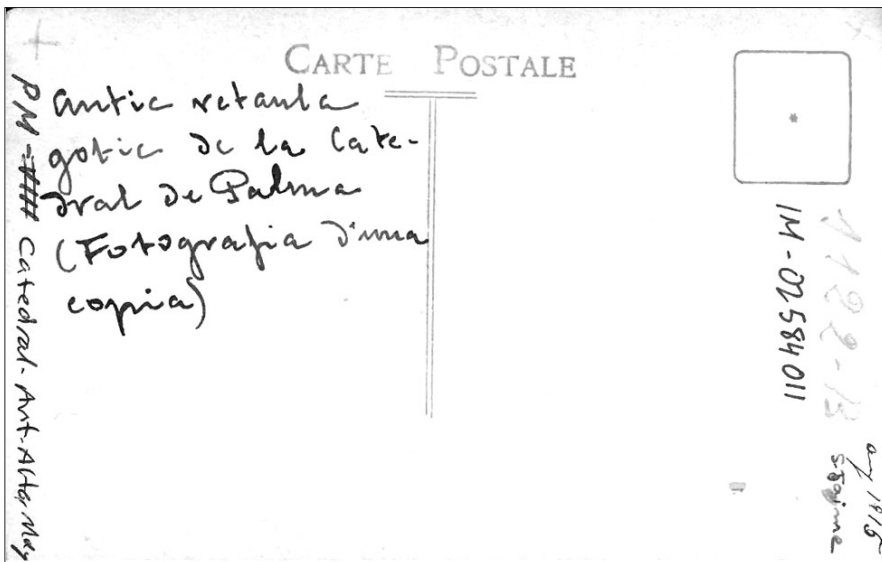 CARTE POSTALE
Antic retaula
gotic de la Cate-
dral de Palma
(Fotografia d'una
copia)
PM - Catedral - Ant. Altar May
IM-02584011
1122-13
any 1915